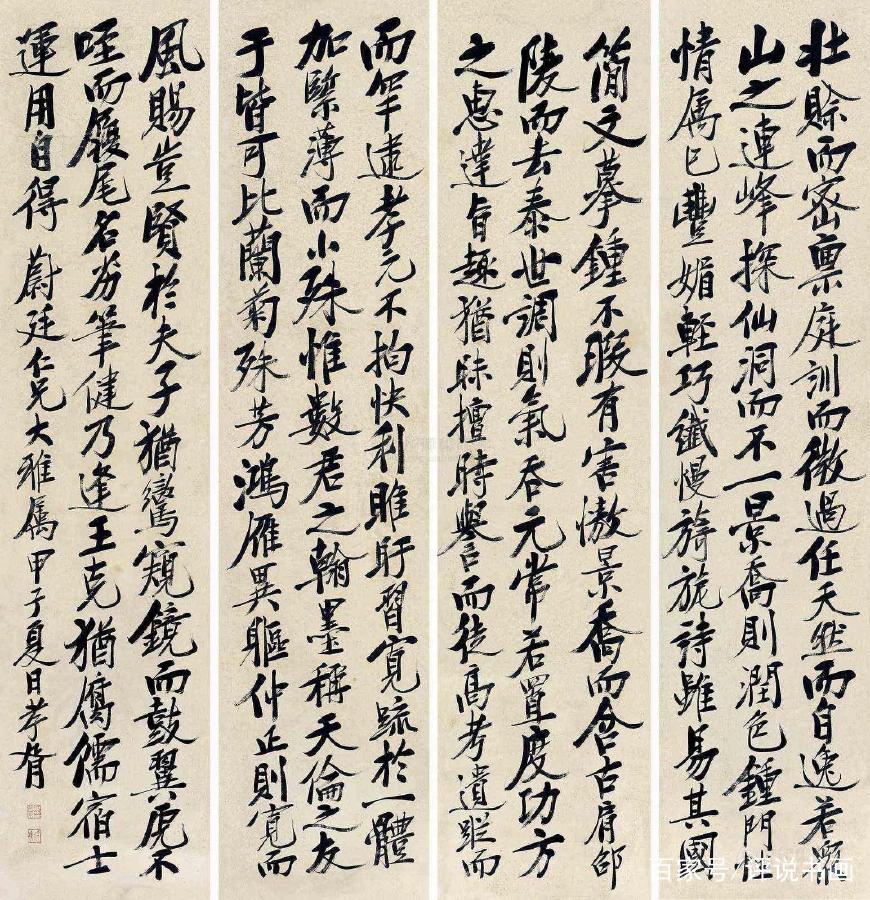 壯賒而密稟庭訓而微過任天然而自逸若羅
山之連峰探仙洞而不一景喬則潤色鍾門性
情屬已豐媚輕巧纖慢旖旎詩雖易其國
簡文摹鍾不瑕有害傲景喬而含古肩邵
陵而去泰世調則氣吞元常若置度功方
之惠達旨趣猶昧擅時譽而徒高考遺蹤而
而罕逮孝元不拘快利睢盱習寬疏於一體
加緊薄而小殊惟數君之翰墨稱天倫之友
于皆可比蘭菊殊芳鴻雁異軀仲正則寬而
風賜豈賢於夫子猶鸞窺鏡而鼓翼虎不
咥而履尾名劣筆健乃逢王克猶腐儒宿士
運用自得 蔚廷仁兄大雅屬 甲子夏日孝胥
百家号/评说书画